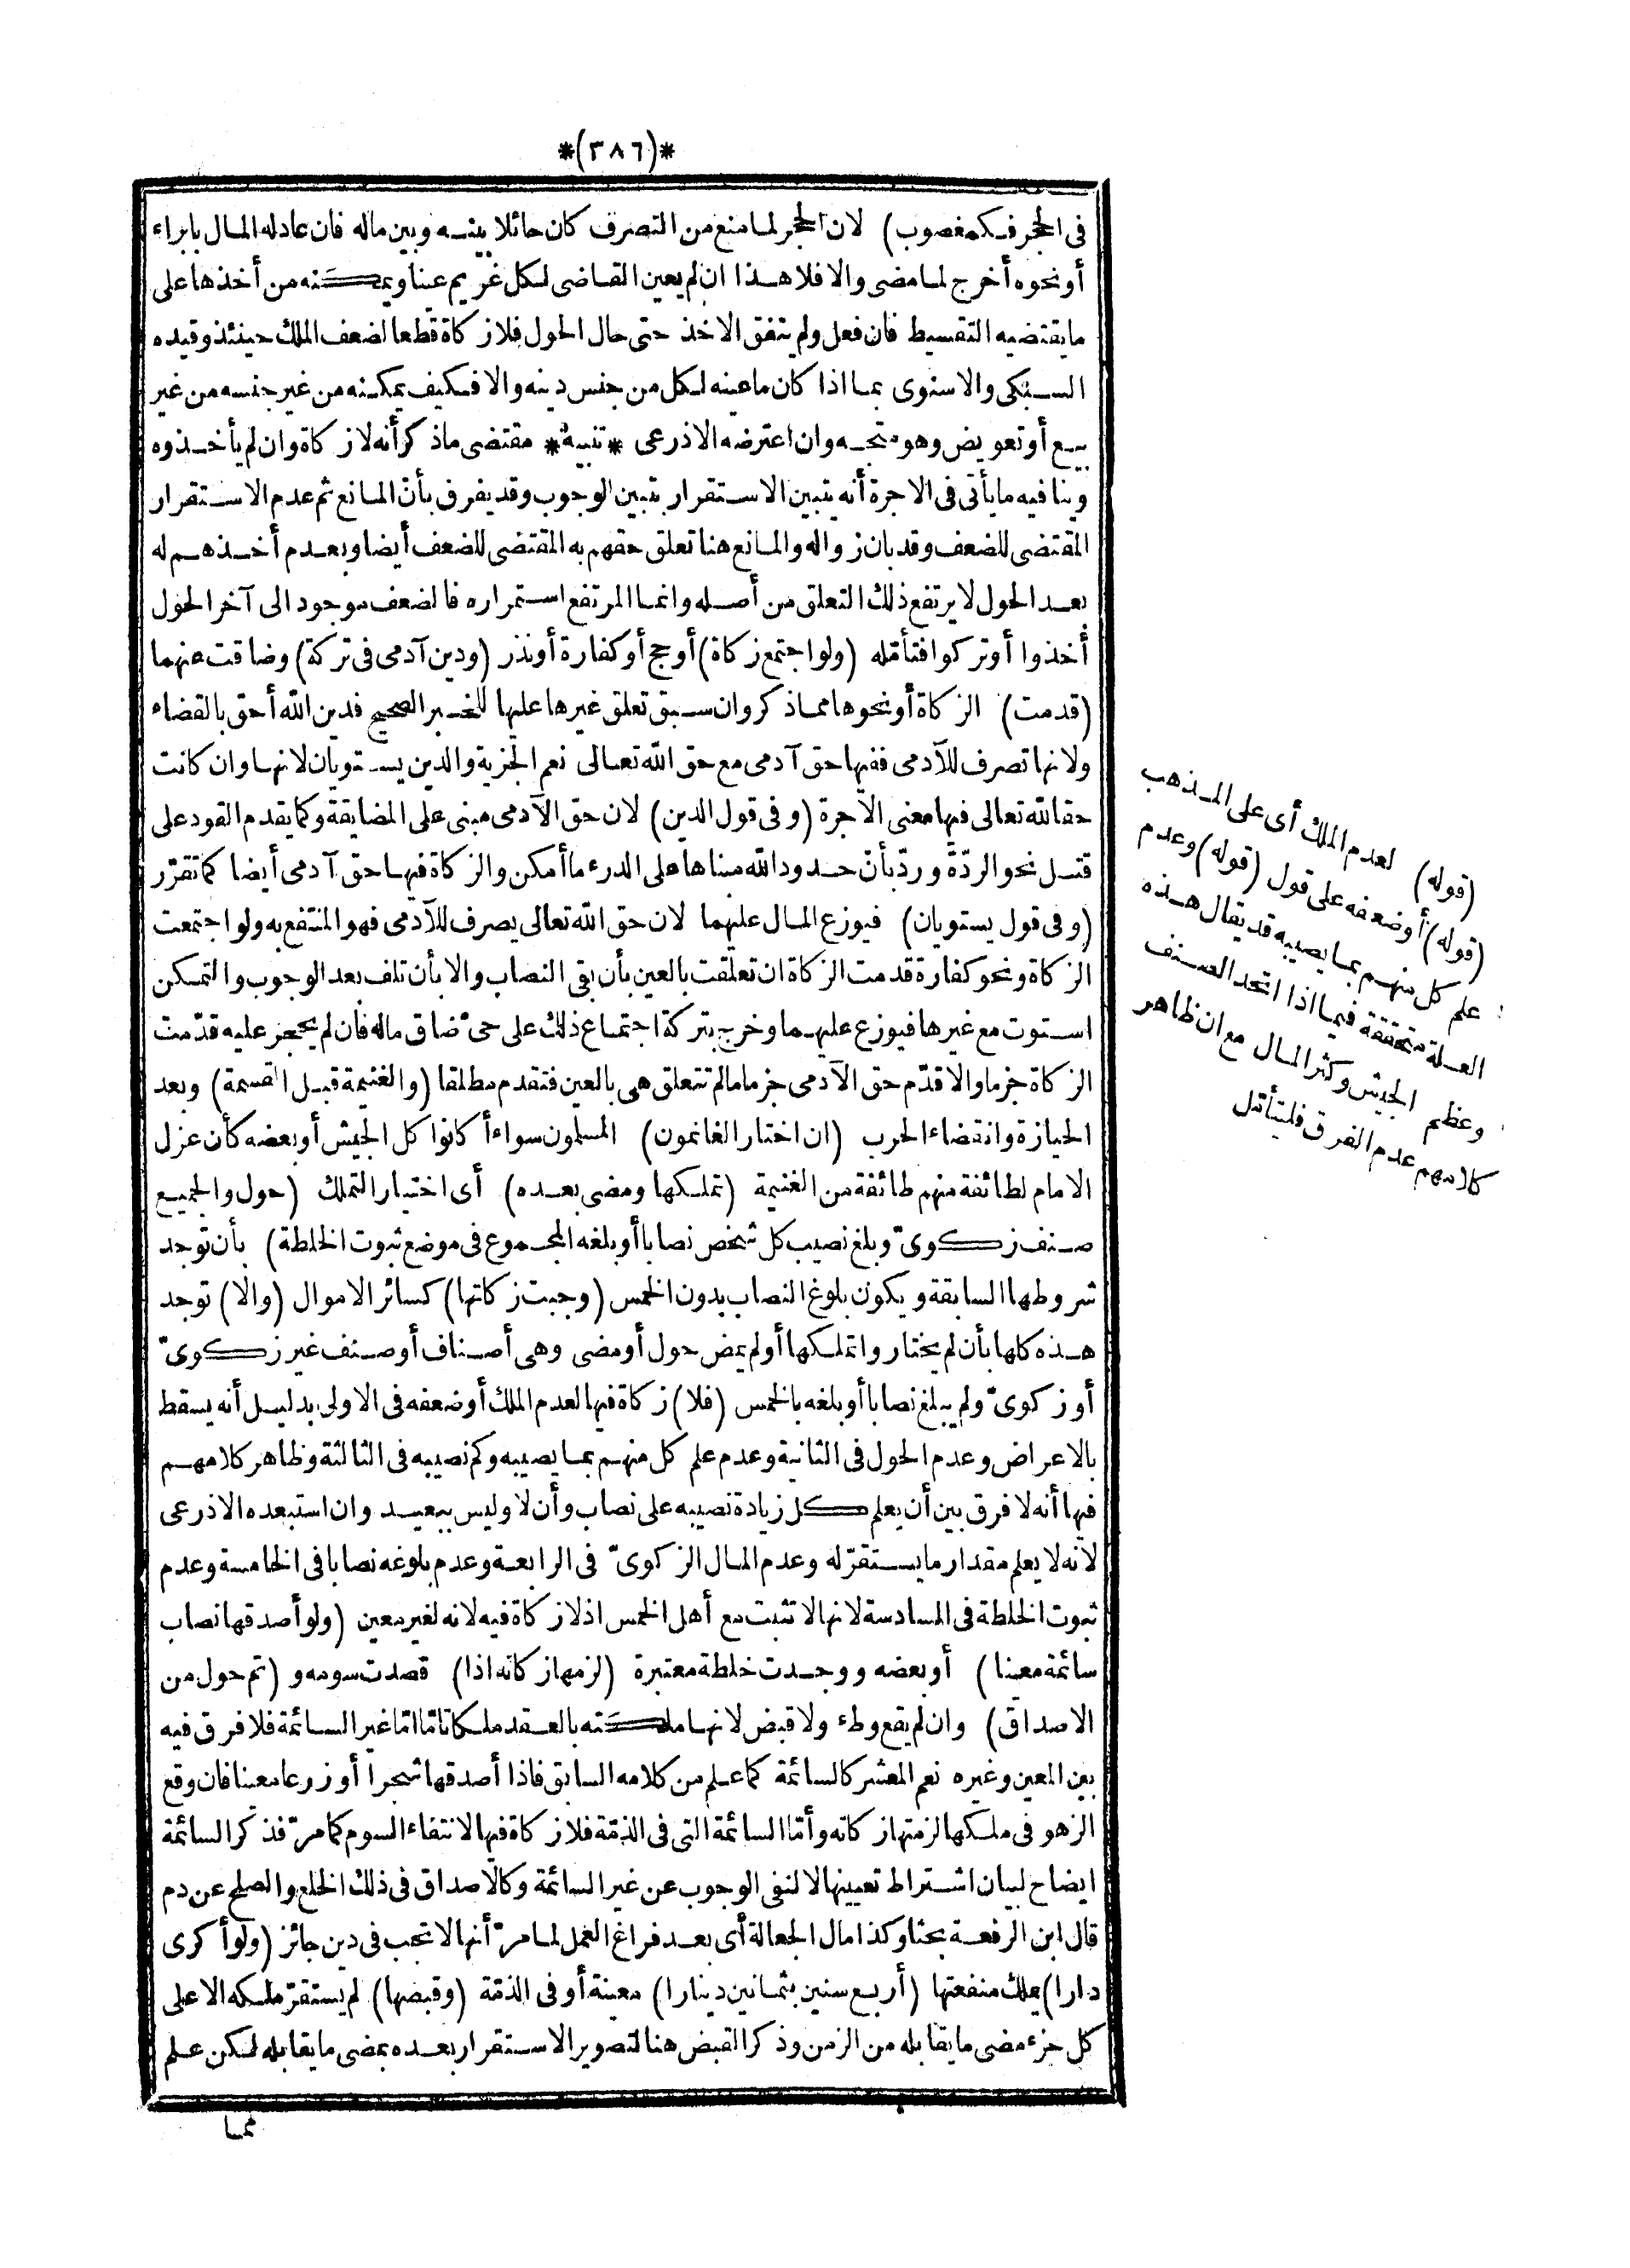 *(٣٨٦)*
فى الحجر فكمغصوب) لان الحجر لما منع من التصرف كان حائلا بينه وبين ماله فان عاد له المال بابراء
أو نحوه أخرج لما مضى والا فلا هذا ان لم يعين القاضى لكل غريم عينا ويمكنه من أخذها على
ما يقتضيه التقسيط فان فعل ولم يتفق الاخذ حتى حال الحول فلا زكاة قطعا لضعف الملك حينئذ وقيده
السبكى والاسنوى بما اذا كان ما عينه لكل من جنس دينه والا فكيف يمكنه من غير جنسه من غير
بيع أو تعويض وهو متجه وان اعترضه الاذرعى *تنبيه* مقتضى ما ذكر أنه لا زكاة وان لم يأخذوه
وينافيه ما يأتى فى الاجرة أنه يتبين الاستقرار بتبين الوجوب وقد يفرق بأن المانع ثم عدم الاستقرار
المقتضى للضعف وقد بان زواله والمانع هنا تعلق حقهم به المقتضى للضعف أيضا وبعدم أخذهم له
بعد الحول لا يرتفع ذلك التعلق من أصله وانما المرتفع استمراره فالضعف موجود الى آخر الحول
أخذوا أو تركوا فتأمله (ولو اجتمع زكاة) أو حج أو كفارة أو نذر (ودين آدمى فى تركة) وضاقت عنهما
(قدمت) الزكاة أو نحوها مما ذكر وان سبق تعلق غيرها عليها للخبر الصحيح فدين الله أحق بالقضاء
ولانها تصرف للآدمى ففيها حق آدمى مع حق الله تعالى نعم الجزية والدين يستويان لانها وان كانت
حقا لله تعالى فيها معنى الاجرة (وفى قول الدين) لان حق الآدمى مبنى على المضايقة وكما يقدم القود على
قتل نحو الردّة وردّ بأنّ حدود الله مبناها على الدرء ما أمكن والزكاة فيها حق آدمى أيضا كما تقرّر
(وفى قول يستويان) فيوزع المال عليهما لان حق الله تعالى يصرف للآدمى فهو المنتفع به ولو اجتمعت
الزكاة ونحو كفارة قدمت الزكاة ان تعلقت بالعين بأن بقى النصاب والا بأن تلف بعد الوجوب والتمكن
استوت مع غيرها فيوزع عليهما وخرج بتركة اجتماع ذلك على حىّ ضاق ماله فان لم يحجر عليه قدّمت
الزكاة جزما والا قدّم حق الآدمى جزما ما لم تتعلق هى بالعين فتقدم مطلقا (والغنيمة قبل القسمة) وبعد
الحيازة وانقضاء الحرب (ان اختار الغانمون) المسلمون سواء أكانوا كل الجيش أو بعضه كأن عزل
الامام لطائفة منهم طائفة من الغنيمة (تملكها ومضى بعده) أى اختيار التملك (حول والجميع
صنف زكوىّ وبلغ نصيب كل شخص نصابا أو بلغه المجموع فى موضع ثبوت الخلطة) بأن توجد
شروطها السابقة ويكون بلوغ النصاب بدون الخمس (وجبت زكاتها) كسائر الاموال (والا) توجد
هذه كلها بأن لم يختاروا تملكها أو لم يمض حول أو مضى وهى أصناف أو صنف غير زكوىّ
أو زكوىّ ولم يبلغ نصابا أو بلغه بالخمس (فلا) زكاة فيها لعدم الملك أو ضعفه فى الاولى بدليل أنه يسقط
بالاعراض وعدم الحول فى الثانية وعدم علم كل منهم بما يصيبه وكم نصيبه فى الثالثة وظاهر كلامهم
فيها أنه لا فرق بين أن يعلم كل زيادة نصيبه على نصاب وأن لا وليس ببعيد وان استبعده الاذرعى
لانه لا يعلم مقدار ما يستقرّ له وعدم المال الزكوىّ فى الرابعة وعدم بلوغه نصابا فى الخامسة وعدم
ثبوت الخلطة فى السادسة لانها لا تثبت مع أهل الخمس اذ لا زكاة فيه لانه لغير معين (ولو أصدقها نصاب
سائمة معينا) أو بعضه ووجدت خلطة معتبرة (لزمها زكاته اذا) قصدت سومه و (تم حول من
الاصداق) وان لم يقع وطء ولا قبض لانها ملكته بالعقد ملكا تامّا امّا غير السائمة فلا فرق فيه
بين المعين وغيره نعم المعشر كالسائمة كما علم من كلامه السابق فاذا أصدقها شجرا أو زرعا معينا فان وقع
الزهو فى ملكها لزمتها زكاته وأمّا السائمة التى فى الذمّة فلا زكاة فيها لانتفاء السوم كما مرّ فذكر السائمة
ايضاح لبيان اشتراط تعيينها لا لنفى الوجوب عن غير السائمة وكالاصداق فى ذلك الخلع والصلح عن دم
قال ابن الرفعة بحثا وكذا مال الجعالة أى بعد فراغ العمل لما مرّ أنها لا تجب فى دين جائز (ولو أكرى
دارا) يملك منفعتها (أربع سنين بثمانين دينارا) معينة أو فى الذمّة (وقبضها) لم يستقرّ ملكه الا على
كل جزء مضى ما يقابله من الزمن وذكر القبض هنا لتصوير الاستقرار بعده بمضى ما يقابله لكن علم
مما
(قوله) لعدم الملك أى على المذهب
(قوله) أو ضعفه على قول (قوله) وعدم
علم كل منهم بما يصيبه قد يقال هذه
العلة متحققة فيما اذا اتحد الصنف
وعظم الجيش وكثر المال مع ان ظاهر
كلامهم عدم الفرق فليتأمل